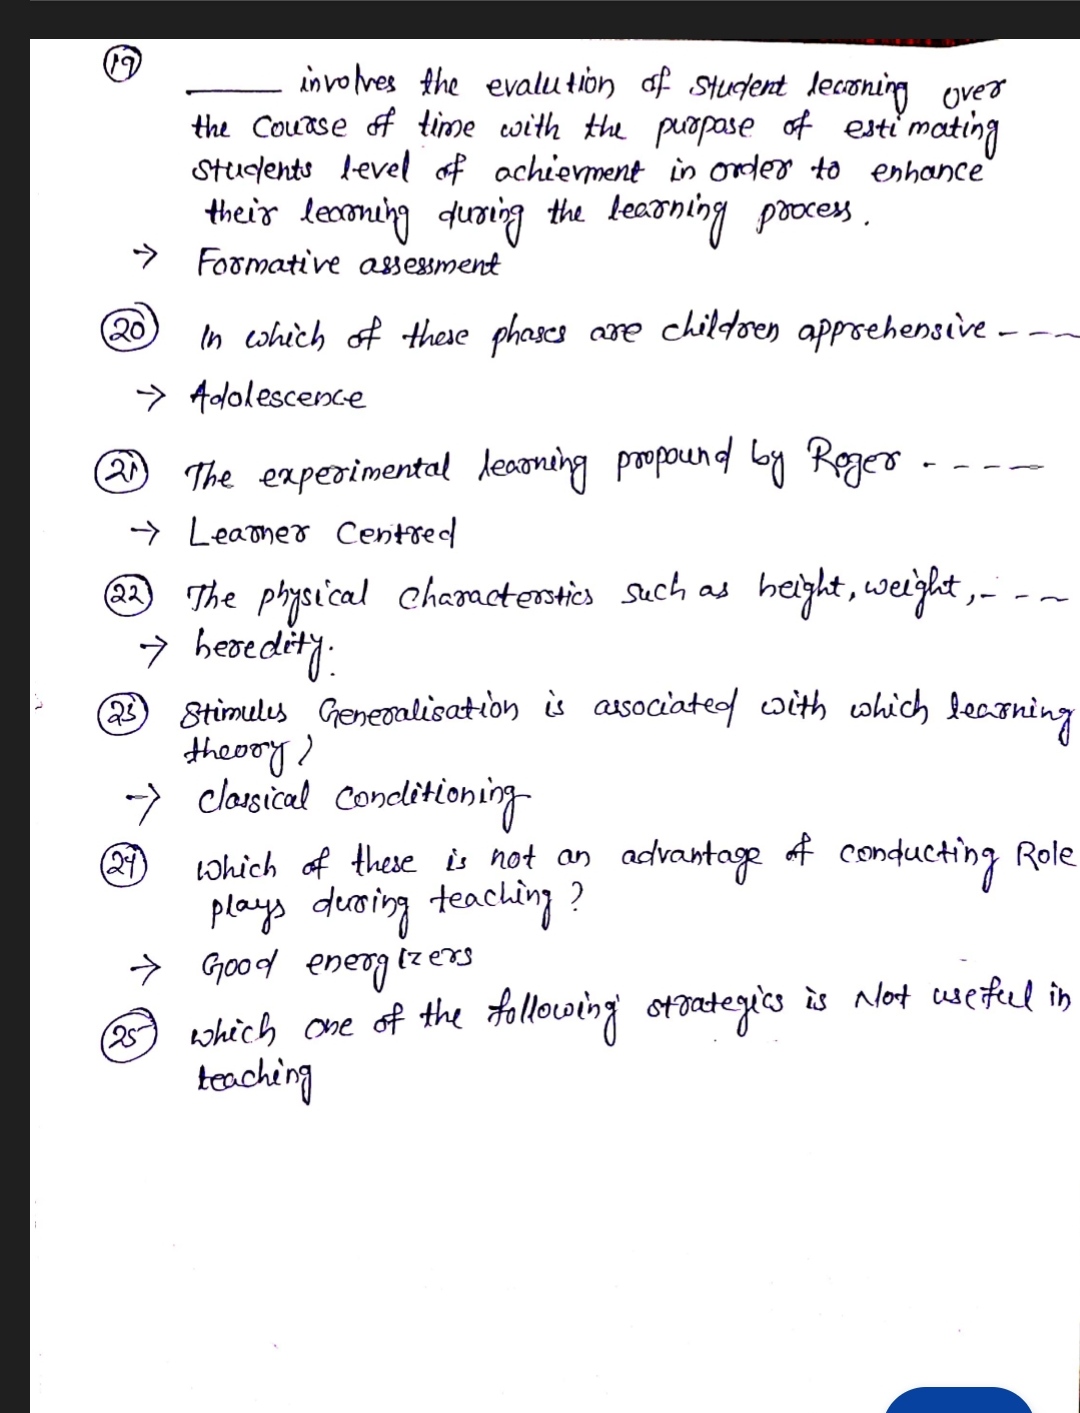 19
______ involves the evalution of student learning over
the Course of time with the purpose of estimating
students level of achievment in order to enhance
their learning during the learning process.
→ Formative assessment
20 In which of these phases are children apprehensive - - -
→ Adolescence
21 The experimental learning propound by Roger - - - -
→ Learner Centred
22 The physical characterstics such as height, weight, - - -
→ heredity.
23 Stimulus Generalisation is associated with which learning
theory?
→ Classical Conditioning
24 which of these is not an advantage of conducting Role
plays during teaching?
→ Good energizers
25 which one of the following strategics is Not useful in
teaching